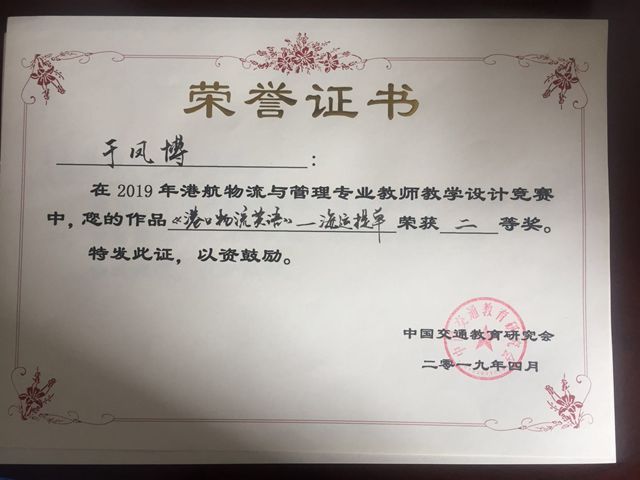 荣誉证书
于凤博：
在2019年港航物流与管理专业教师教学设计竞赛
中，您的作品《港口物流英语》—海运提单荣获二等奖。
特发此证，以资鼓励。
中国交通教育研究会
二零一九年四月